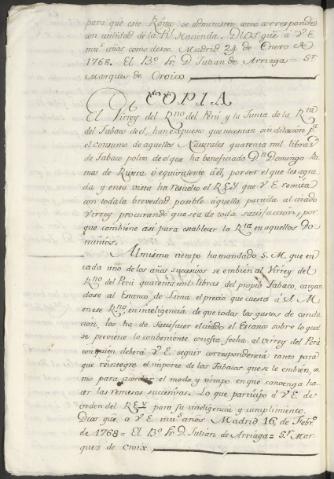 para que este Rāmo se administre como corresponde
en utilidad de la Rl. Hacienda. Dios gue. à V.E.
ms. años como deseo. Madrid 24 de Enero de
1768. El Bo. Fr. D. Julian de Arriaga = Sr.
Marques de Croix =
COPIA
El Virrey del Rno. del Perú, y la Junta de la Rta.
del Tabaco de el, han expuesto que necesitan sin dilacion pa.
el consumo de aquellos Naturales quarenta mil libras
de Tabaco polvo de el que ha beneficiado Dn. Domingo
de Rivero, ò equivalente à el, por ser el que les agra-
da, y en su vista ha resuelto el REY que V.E. remita
con toda la brevedad posible aquella partida al citado
Virrey procurando que sea de toda satisfaccion, por
que combiene asi para establecer la Rta. en aquellos Do-
minios.
Al mismo tiempo ha mandado S.M. que en
cada uno de los años sucesivos se embien al Virrey del
Rno. del Perú quarenta mil libras del propio Tabaco, cargan
dose al Estanco de Lima el precio que cuesta à S.M.
en ese Rno. en inteligencia de que todos los gastos de condu
cion, los ha de satisfacer el citado Estanco sobre lo qual
se previene lo combeniente con esta fecha al Virrey del Perú
con quien deverà V.E. seguir correspondencia tanto para
que reintegre el importe de los Tabacos que se le embien, co
mo para acordar el modo y tiempo en que convenga ha-
cer las remesas sucesivas. Lo que participo à V.E. de
orden del REY para su inteligencia y cumplimiento.
Dios gue. à V.E. ms. años. Madrid 16 de Febro.
de 1768 = El Bo. Fr. D. Julian de Arriaga = Sr. Mar
ques de Croix.